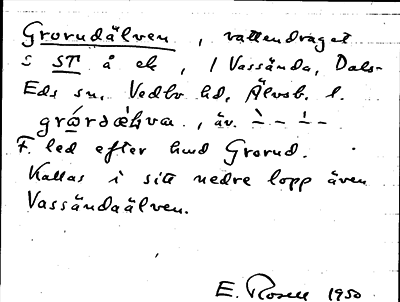 Grorudälven, vattendraget
S ST å ek, / Vassända, Dals-
Eds sn, Vedbo hd, Älvsb. l.
grǿrdæ̀lva, äv. – – –
F. led efter hmd Grorud.
Kallas i sitt nedre lopp även
Vassändaälven.
E. Rosell 1950